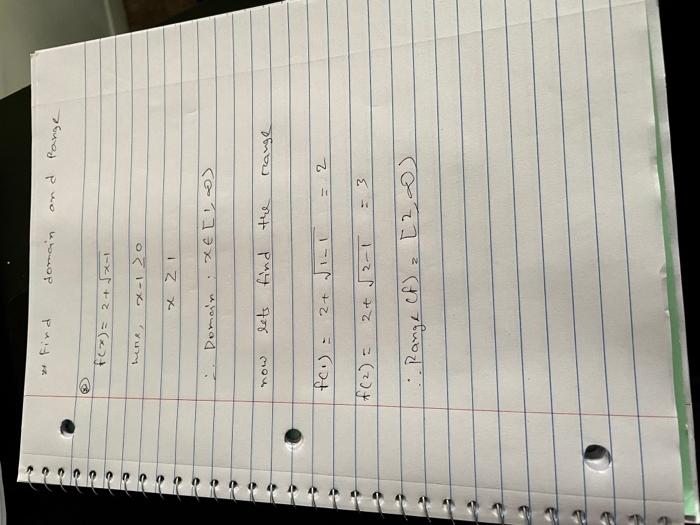 * Find domain and Range
②
f(x) = 2 + √x-1
here, x-1 ≥ 0
x ≥ 1
∴ Domain : x ∈ [1, ∞)
now lets find the range
f(1) = 2 + √1-1 = 2
f(2) = 2 + √2-1 = 3
∴ Range (f) = [2, ∞)